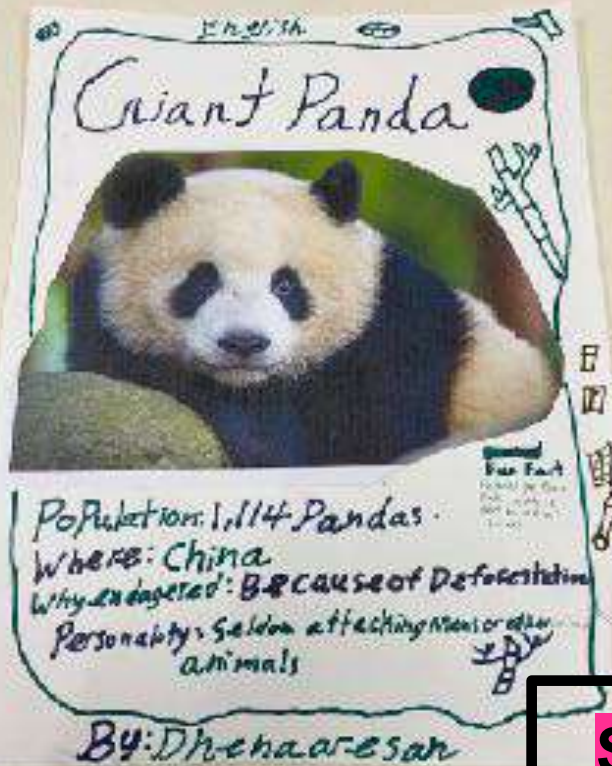 English
Giant Panda
Fun Fact
Population: 1,114 Pandas.
Where: China
Why endagered: Because of Deforestation
Personality: Seldom attacking mans or other
animals
By: Dhenaaresan
S